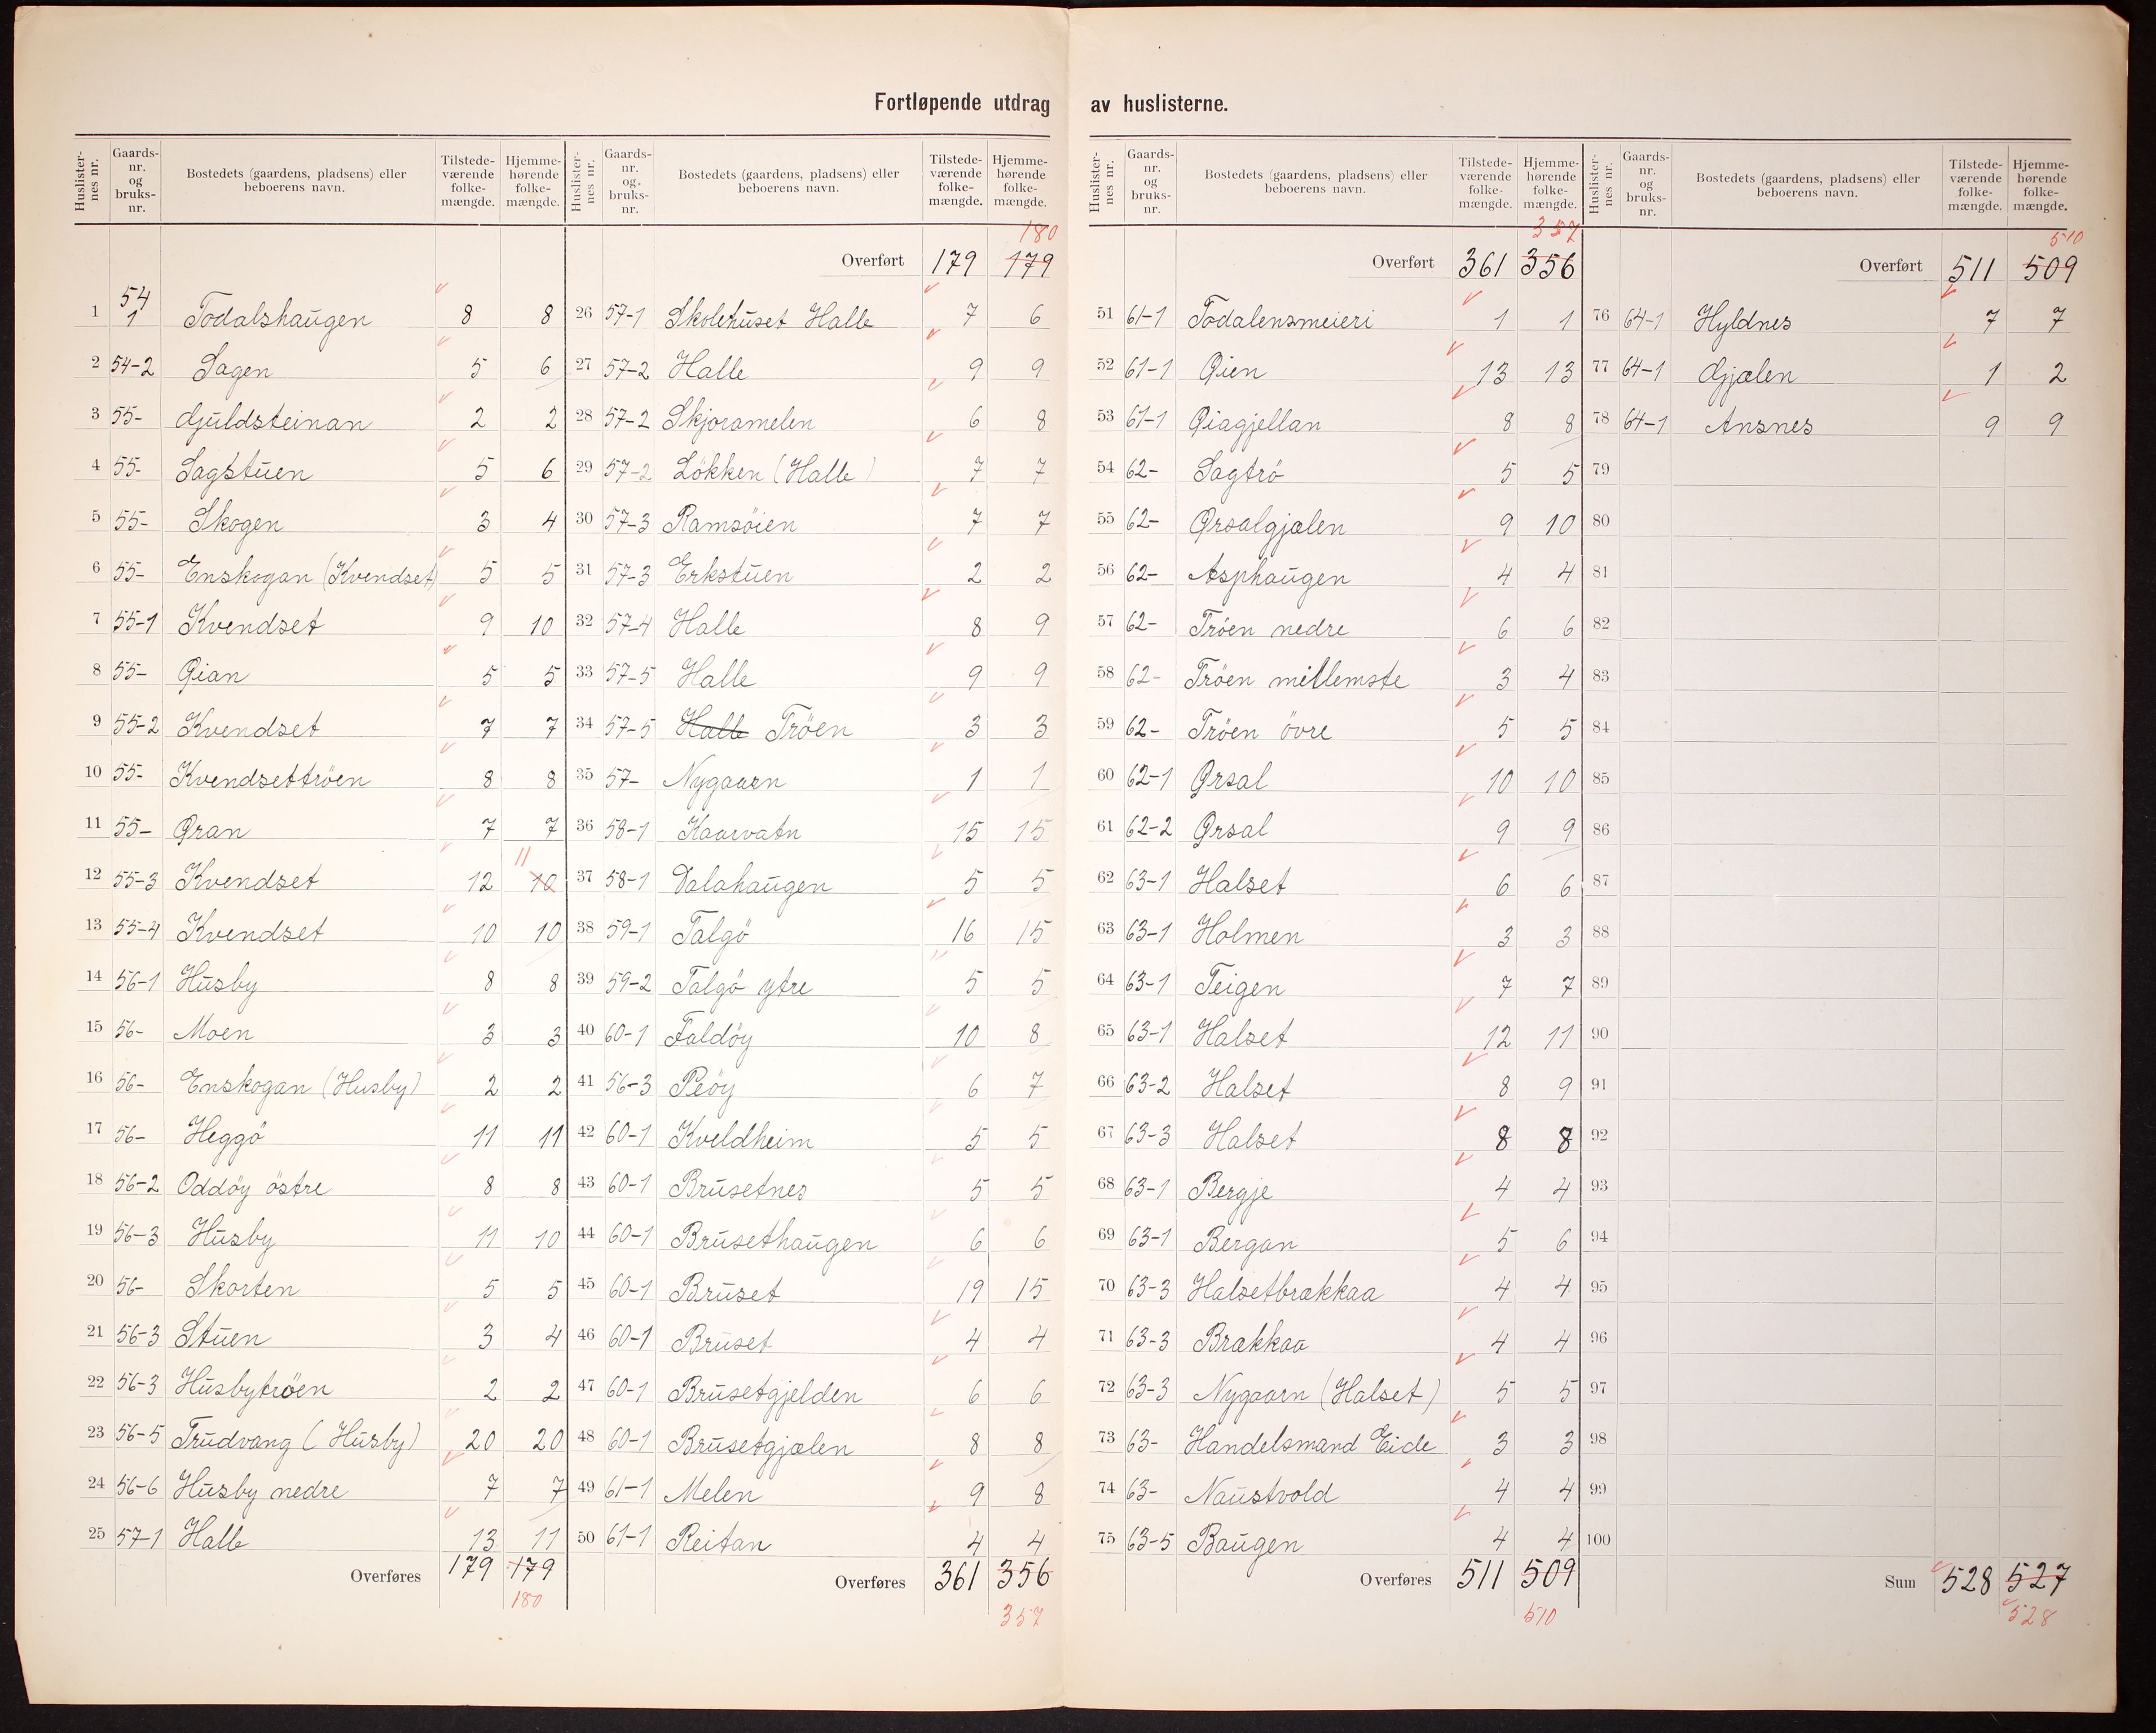 Fortløpende utdrag av huslisterne.
Huslister-nes nr. Gaards-nr. og bruks-nr. Bostedets (gaardens, pladsens) eller beboerens navn. Tilstede-værende folke-mængde. Hjemme-hørende folke-mængde.
1 54 1 Todalshaugen 8 8
2 54-2 Sagen 5 6
3 55- Gjuldsteinan 2 2
4 55- Sagstuen 5 6
5 55- Skogen 3 4
6 55- Enskogan (Kvendset) 5 5
7 55-1 Kvendset 9 10
8 55- Øian 5 5
9 55-2 Kvendset 7 7
10 55- Kvendsettröen 8 8
11 55- Øran 7 7
12 55-3 Kvendset 12 10 11
13 55-4 Kvendset 10 10
14 56-1 Husby 8 8
15 56- Moen 3 3
16 56- Enskogan (Husby) 2 2
17 56- Heggö 11 11
18 56-2 Oddöy östre 8 8
19 56-3 Husby 11 10
20 56- Skorten 5 5
21 56-3 Stuen 3 4
22 56-3 Husbytröen 2 2
23 56-5 Trudvang (Husby) 20 20
24 56-6 Husby nedre 7 7
25 57-1 Halle 13 11
Overføres 179 179
180
Huslister-nes nr. Gaards-nr. og bruks-nr. Bostedets (gaardens, pladsens) eller beboerens navn. Tilstede-værende folke-mængde. Hjemme-hørende folke-mængde.
180
Overført 179 179
26 57-1 Skolehuset Halle 7 6
27 57-2 Halle 9 9
28 57-2 Skjoramelen 6 8
29 57-2 Lökken (Halle) 7 7
30 57-3 Ramsöien 7 7
31 57-3 Erkstuen 2 2
32 57-4 Halle 8 9
33 57-5 Halle 9 9
34 57-5 Halle Tröen 3 3
35 57- Nygaarn 1 1
36 58-1 Kaarvatn 15 15
37 58-1 Dalahaugen 5 5
38 59-1 Talgö 16 15
39 59-2 Talgö ytre 5 5
40 60-1 Faldöy 10 8
41 56-3 Peöy 6 7
42 60-1 Kveldheim 5 5
43 60-1 Brusetnes 5 5
44 60-1 Brusethaugen 6 6
45 60-1 Bruset 19 15
46 60-1 Bruset 4 4
47 60-1 Brusetgjelden 6 6
48 60-1 Brusetgjælen 8 8
49 61-1 Melen 9 8
50 61-1 Reitan 4 4
Overføres 361 356
357
Huslister-nes nr. Gaards-nr. og bruks-nr. Bostedets (gaardens, pladsens) eller beboerens navn. Tilstede-værende folke-mængde. Hjemme-hørende folke-mængde.
357
Overført 361 356
51 61-1 Todalensmeieri 1 1
52 61-1 Øien 13 13
53 61-1 Øiagjellan 8 8
54 62- Sagtrö 5 5
55 62- Ørsalgjælen 9 10
56 62- Asphaugen 4 4
57 62- Tröen nedre 6 6
58 62- Tröen millemste 3 4
59 62- Tröen övre 5 5
60 62-1 Ørsal 10 10
61 62-2 Ørsal 9 9
62 63-1 Halset 6 6
63 63-1 Holmen 3 3
64 63-1 Teigen 7 7
65 63-1 Halset 12 11
66 63-2 Halset 8 9
67 63-3 Halset 8 8
68 63-1 Bergje 4 4
69 63-1 Bergan 5 6
70 63-3 Halsetbrækkaa 4 4
71 63-3 Brækkaa 4 4
72 63-3 Nygaarn (Halset) 5 5
73 63- Handelsmand Eide 3 3
74 63- Naustvold 4 4
75 63-5 Baugen 4 4
Overføres 511 509
510
Huslister-nes nr. Gaards-nr. og bruks-nr. Bostedets (gaardens, pladsens) eller beboerens navn. Tilstede-værende folke-mængde. Hjemme-hørende folke-mængde.
510
Overført 511 509
76 64-1 Hyldnes 7 7
77 64-1 Gjælen 1 2
78 64-1 Ansnes 9 9
79
80
81
82
83
84
85
86
87
88
89
90
91
92
93
94
95
96
97
98
99
100
Sum 528 527
528